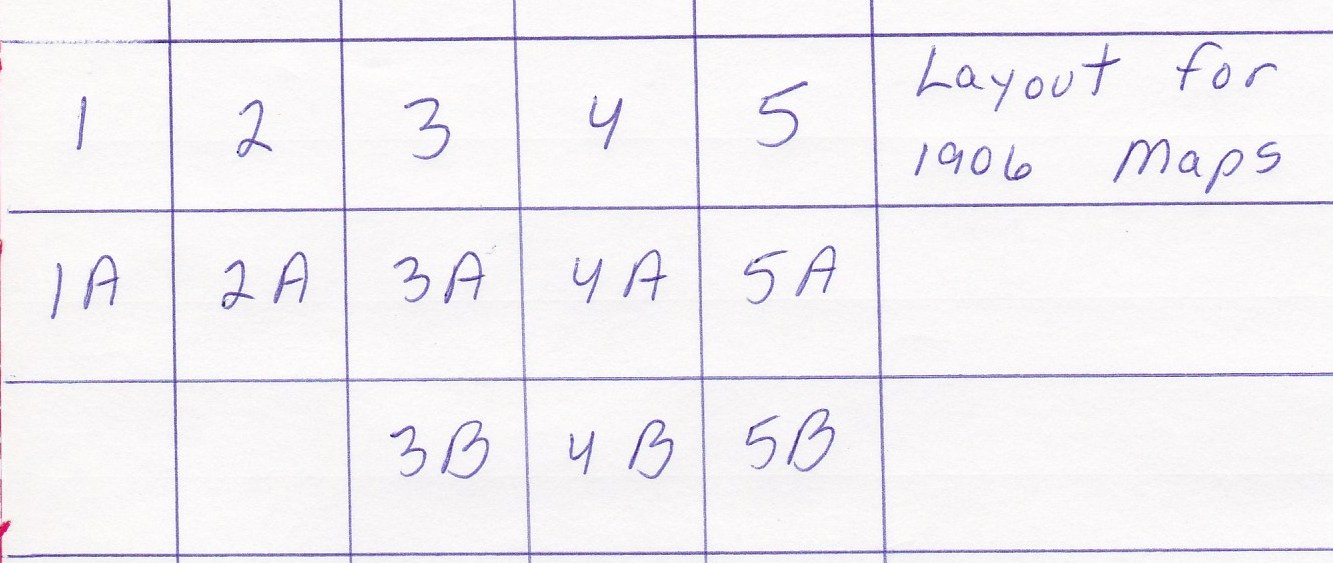 1 2 3 4 5 Layout for
1906 Maps
1A 2A 3A 4A 5A
3B 4B 5B